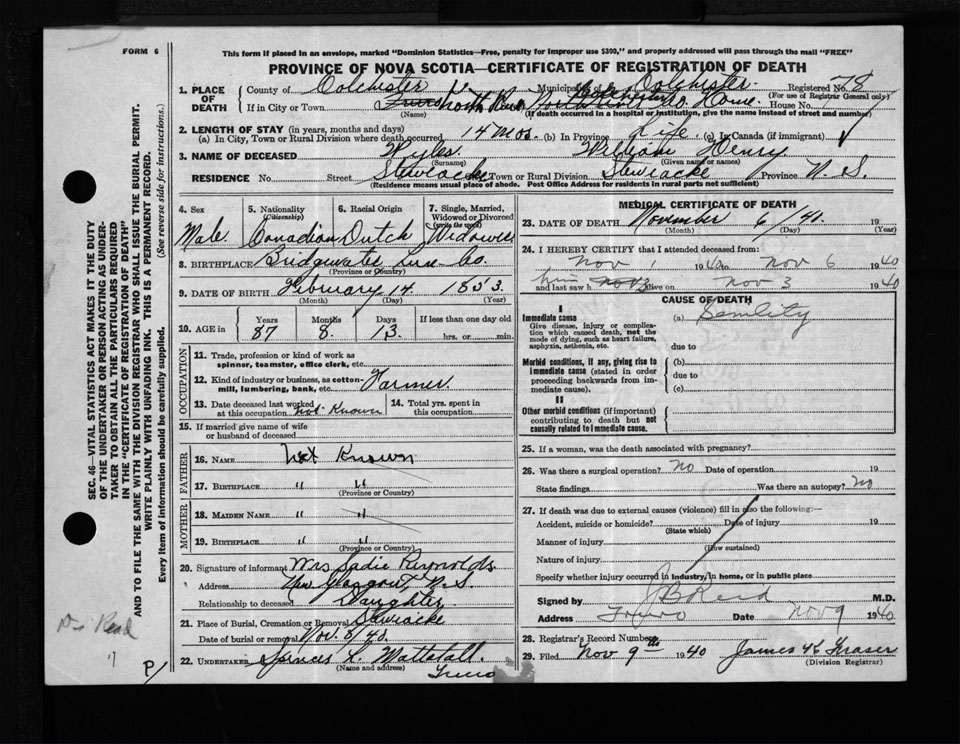 FORM 6
This form if placed in an envelope, marked "Dominion Statistics—Free, penalty for improper use $300," and properly addressed will pass through the mail "FREE"
PROVINCE OF NOVA SCOTIA—CERTIFICATE OF REGISTRATION OF DEATH
1. PLACE OF DEATH County of Colchester Municipality of Colchester Registered No. 78
(For use of Registrar General only)
If in City or Town North River Home. House No.
(Name) (If death occurred in a hospital or institution, give the name instead of street and number)
2. LENGTH OF STAY (in years, months and days)
(a) In City, Town or Rural Division where death occurred 14 mos. (b) In Province Life (c) In Canada (if immigrant)
3. NAME OF DECEASED Wyles. William Henry
(Surname) (Given name or names)
RESIDENCE No. Street Stewiacke City, Town or Rural Division Stewiacke Province N. S.
(Residence means usual place of abode. Post Office Address for residents in rural parts not sufficient)
4. Sex 5. Nationality (Citizenship) 6. Racial Origin 7. Single, Married, Widowed or Divorced (write the word)
Male Canadian Dutch Widower
8. BIRTHPLACE Bridgewater Lun. Co.
(Province or Country)
9. DATE OF BIRTH February 14 1853.
(Month) (Day) (Year)
10. AGE in Years Months Days If less than one day old
87 8. 13. hrs. or min.
OCCUPATION
11. Trade, profession or kind of work as spinner, teamster, office clerk, etc.
12. Kind of industry or business, as cotton-mill, lumbering, bank, etc. Farmer.
13. Date deceased last worked at this occupation not Known 14. Total yrs. spent in this occupation
15. If married give name of wife or husband of deceased
FATHER
16. NAME Not Known
17. BIRTHPLACE " "
(Province or Country)
MOTHER
18. MAIDEN NAME " "
19. BIRTHPLACE " "
(Province or Country)
20. Signature of informant Mrs Sadie Reynolds
Address New Glasgow, N.S.
Relationship to deceased Daughter
21. Place of Burial, Cremation or Removal Stewiacke
Date of burial or removal Nov. 8/40.
22. UNDERTAKER Spencer L. Mattatall.
(Name and address) Truro
MEDICAL CERTIFICATE OF DEATH
23. DATE OF DEATH November 6/40. 19
(Month) (Day) (Year)
24. I HEREBY CERTIFY that I attended deceased from:
Nov 1 1940 to Nov 6 1940
and last saw him alive on Nov 3 1940
CAUSE OF DEATH
I
Immediate cause (a)
Give disease, injury or complication which caused death, not the mode of dying, such as heart failure, asphyxia, asthenia, etc. due to
Morbid conditions, if any, giving rise to immediate cause (stated in order proceeding backwards from immediate cause). (b) due to (c)
II
Other morbid conditions (if important) contributing to death but not causally related to immediate cause.
25. If a woman, was the death associated with pregnancy?
26. Was there a surgical operation? no Date of operation 19
State findings Was there an autopsy? no
27. If death was due to external causes (violence) fill in also the following:—
Accident, suicide or homicide? Date of injury 19
(State which)
Manner of injury
(How sustained)
Nature of injury
Specify whether injury occurred in industry, in home, or in public place
Signed by J B Reid M.D.
Address Truro Date Nov 9 1940
28. Registrar's Record Number
29. Filed Nov 9th 1940 James K Fraser
(Division Registrar)
SEC. 46—VITAL STATISTICS ACT MAKES IT THE DUTY
OF THE UNDERTAKER OR PERSON ACTING AS UNDER-
TAKER TO OBTAIN ALL THE PARTICULARS REQUIRED
IN THE "CERTIFICATE OF REGISTRATION OF DEATH"
AND TO FILE THE SAME WITH THE DIVISION REGISTRAR WHO SHALL ISSUE THE BURIAL PERMIT.
WRITE PLAINLY WITH UNFADING INK. THIS IS A PERMANENT RECORD.
Every item of information should be carefully supplied. (See reverse side for instructions.)
Dr Read
P/